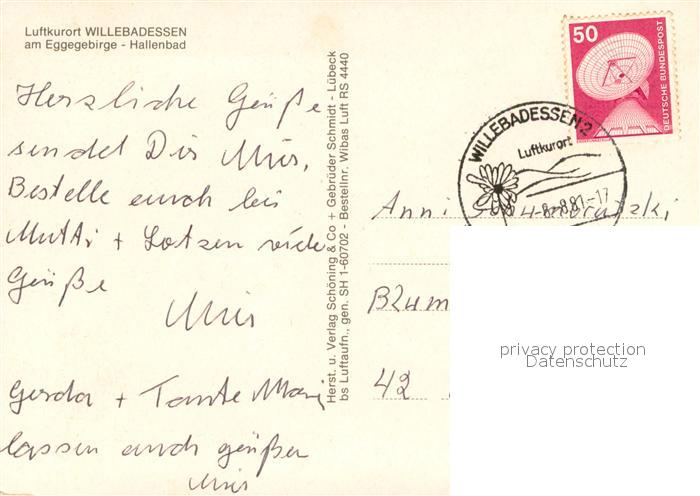 Luftkurort WILLEBADESSEN
am Eggegebirge - Hallenbad
Herzliche Grüße
sendet Dir
Bestelle auch bei
Mutti + Lotzen viele
Grüße
Gerda + Tante
lassen auch grüßen
Herst. u. Verlag Schöning & Co + Gebrüder Schmidt - Lübeck
bs Luftaufn., gen. SH 1-60702 - Bestellnr. Wibas Luft RS 4440
50
DEUTSCHE BUNDESPOST
WILLEBADESSEN 2
Luftkurort
8.81-17
Anni
Blum
42
privacy protection
Datenschutz